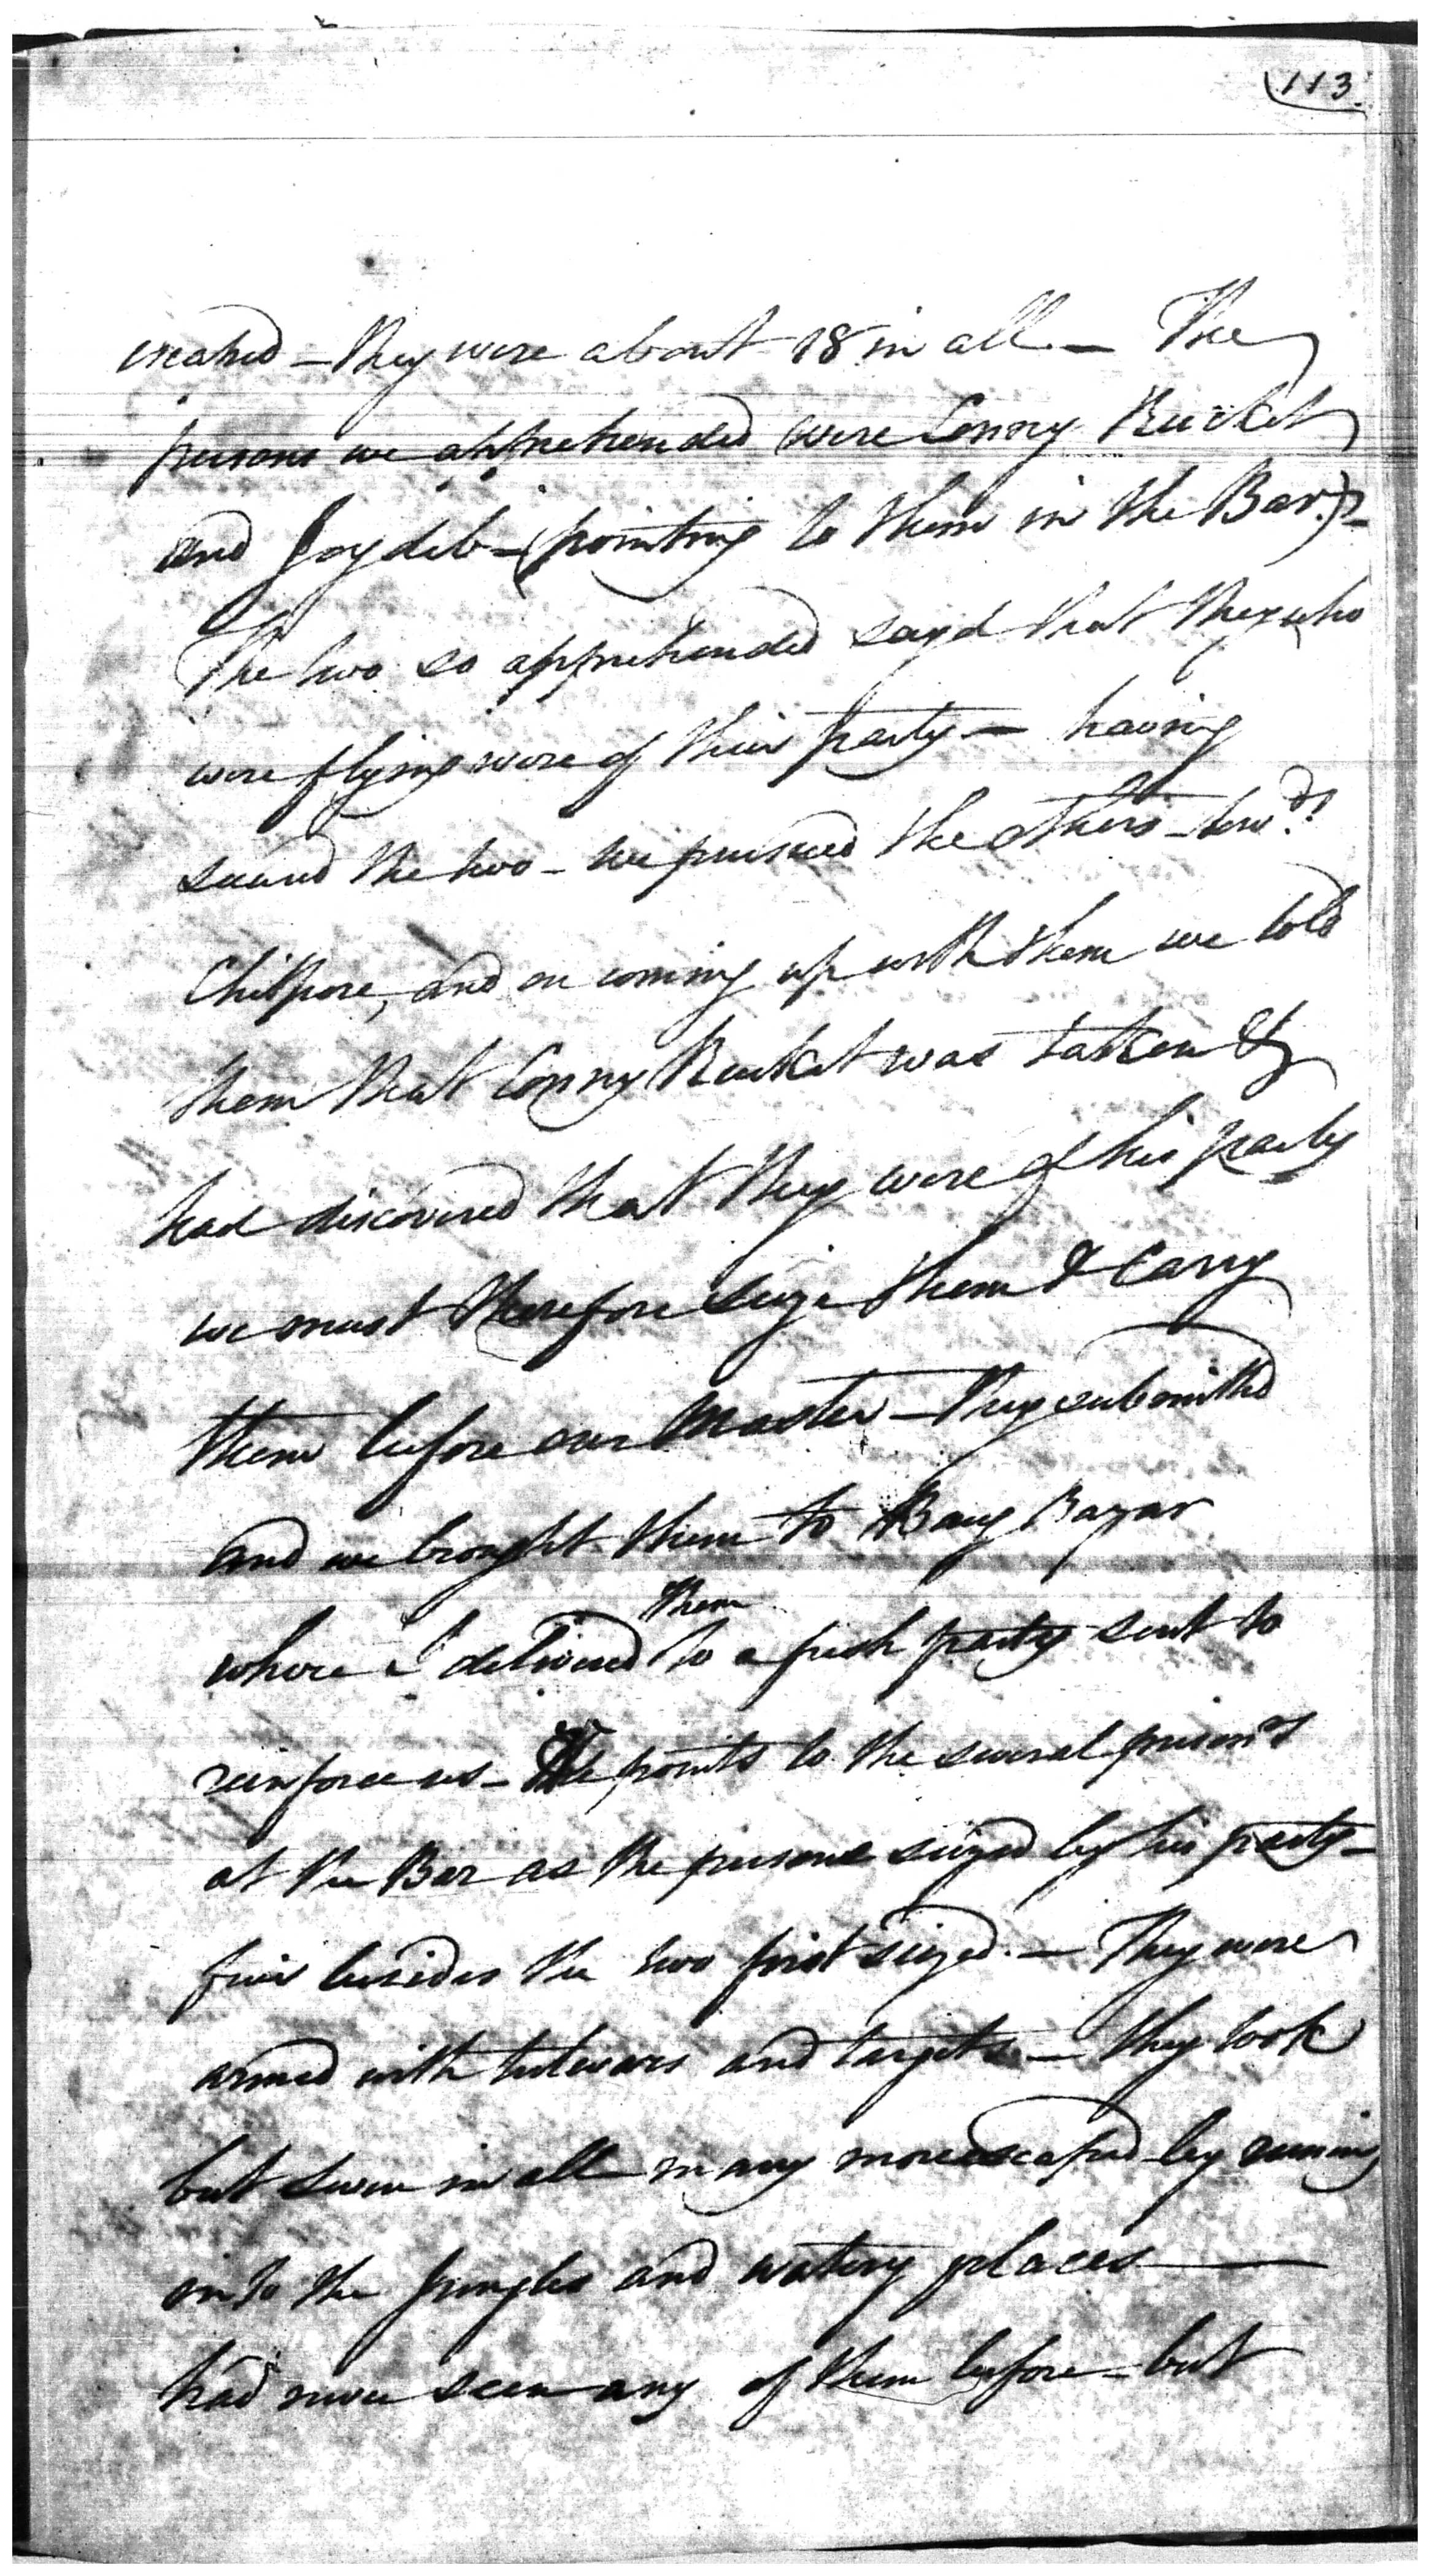 113.
creased – they were about 18 in all – The
persons we apprehended were Conny Burket
and Joydeb – (pointing to them in the Bar) –
The two so apprehended sayd that they who
were flying were of their party – having
secured the two – we pursued the others – tow.ds
Chitpore, and on coming up with them we told
them that Conny Burket was taken &
had discovered that they were of his party
we must therefore seize them & carry
them before our Master – They submitted
and we brought them to Baug Bazar
where I delivered them to a fresh party sent to
reinforce us – He points to the several prison.rs
at the Bar as the persons seized by his party –
five besides the two first seized. – They were
armed with tulwars and targets – they took
but seven in all – many more escaped by running
into the jungles and watery places —
had never seen any of them before – but